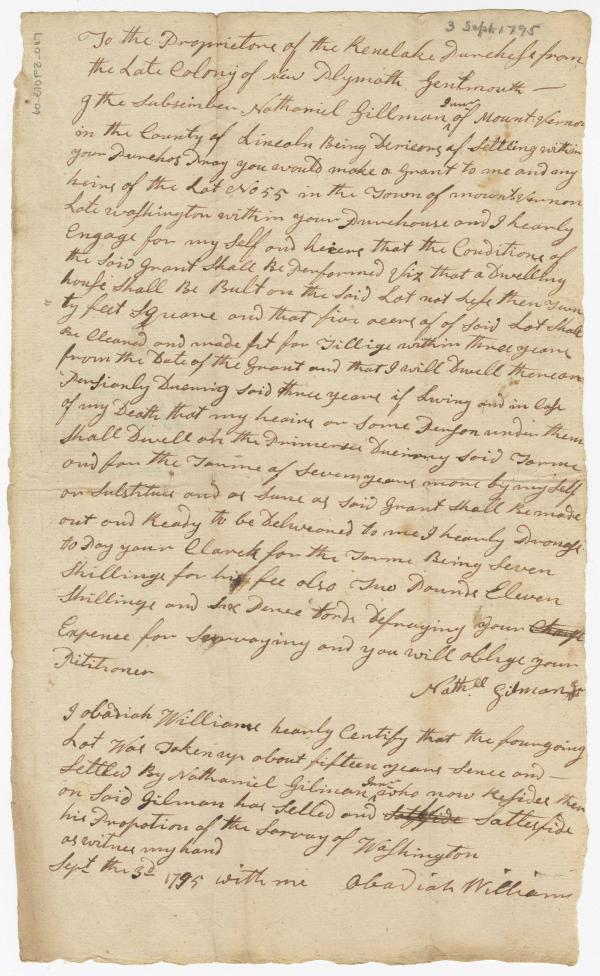 3 Sept. 1795
To the Proprietors of the Kenelake Purchess from
the Late Colony of New Plymoth Gentmouth —
the Subsimber Nathaniel Gillman Junr of Mount Vernon
in the County of Lincoln Being Dericons of Settling within
your Purches Pray you would make a Grant to me and my
heirs of the Lot No 55 in the Town of mount Vernon
Late Washington within your Purchouse and I hearly
Engage for my Self and heiers that the Conditions of
the Said Grant Shall Be Performed Viz that a Dwelling
house Shall Be Bult on the Said Lot not Less then Twen
ty feet Square and that five acers of of Said Lot Shall
Be Cleared and made fit for Tillige within three years
from the Date of the Grant and that I will Dwell thereon
Persionly Duering Said three years if Living and in Case
of my Death that my heairs or Some Person under them
Shall Dwell on the Primeses Duering Said Tarme
and for the Tarme of Seven years more by my Self
or Substitue and as Sune as Said Grant Shall Be made
out and Ready to be Deliveaned to me I hearly Promse
to Pay your Clarck for the Tarme Being Seven
Shillings for his fee also Two Pounds Eleven
Shillings and Six Pence tords Defraying your Charge
Expence for Survaying and you will oblige your
Pititioner
Nath.ll Gilman Jr
I obadiah Williams hearly Certify that the fourgoing
Lot Was Taken up about fifteen years Sence and —
Settled By Nathaniel Gilman Junr who now Resides ther
on Said Gilman has Selled and Sattesfide
his Propotion of the Sarvay of Washington
as witness my hand
Sept the 3d 1795 with me Obadiah Williams